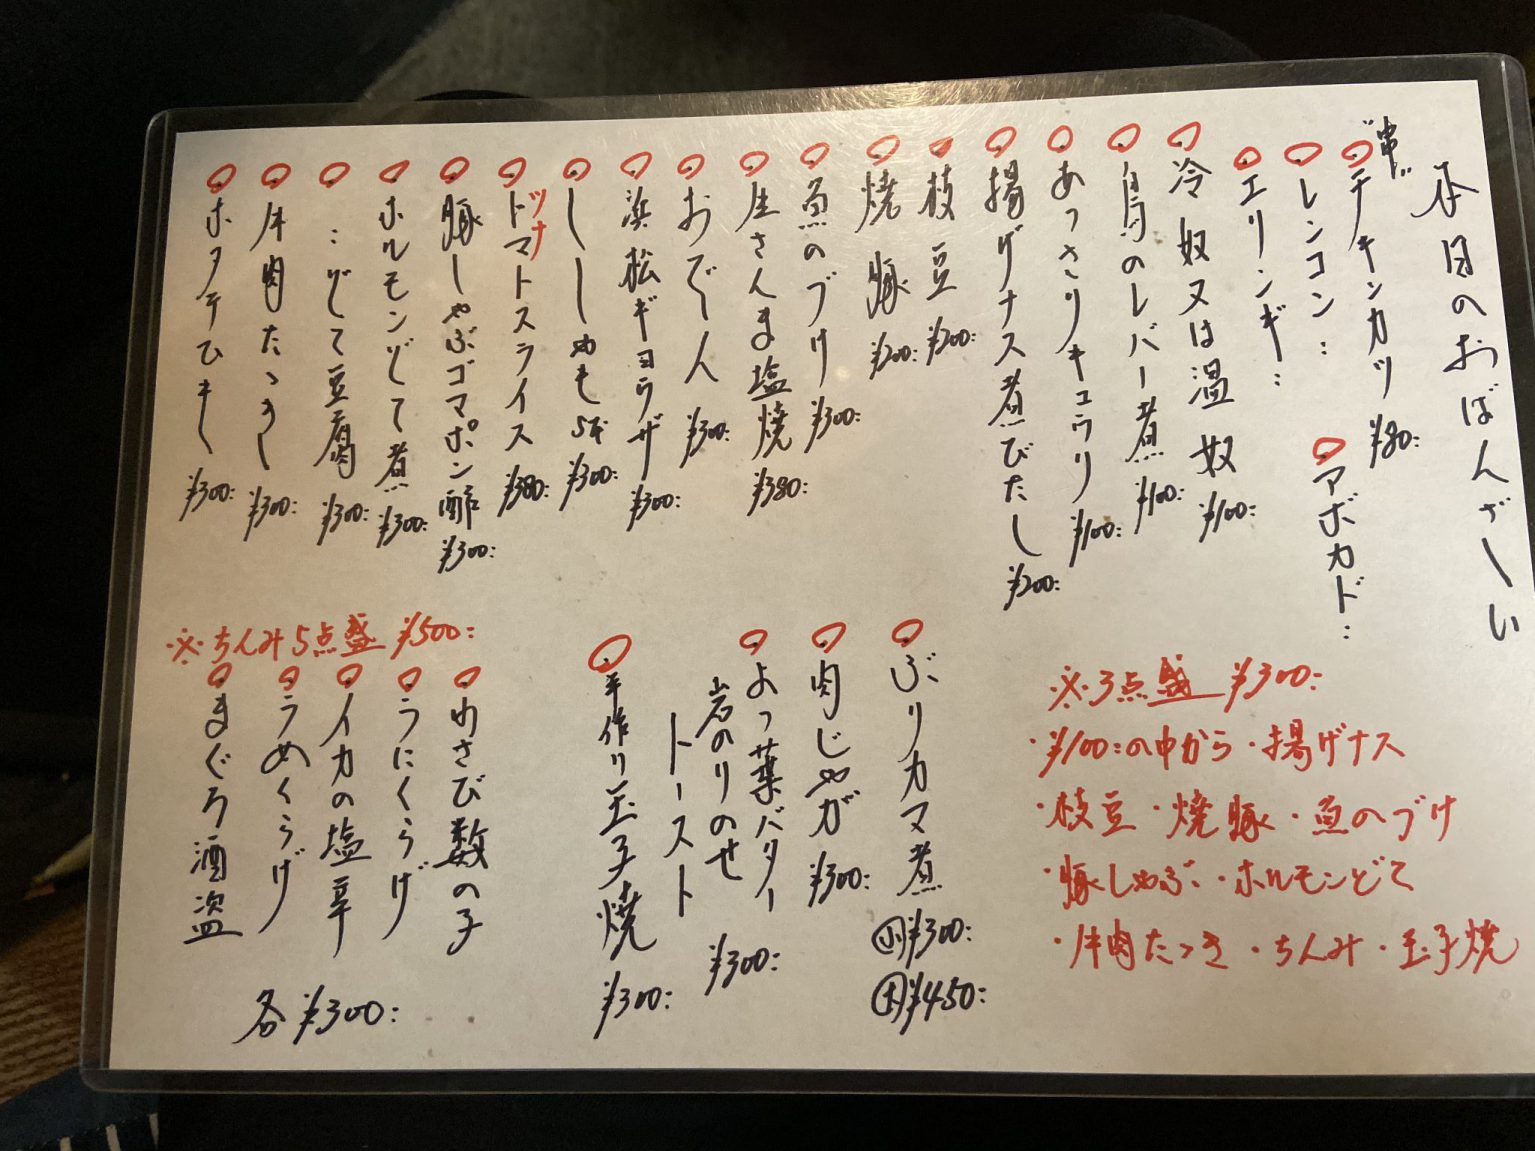 本日のおばんざーい
"串"
チキンカツ ¥80:
レンコン :
アボカド :
エリンギ :
冷奴又は温奴 ¥100:
鳥のレバー煮 ¥100:
あっさりキュウリ ¥100:
揚げナス煮びたし ¥200:
枝豆 ¥200:
焼豚 ¥200:
魚のづけ ¥300:
生さんま塩焼 ¥380:
おでーん ¥300:
浜松ギョウザ ¥300:
ししゃも 5本 ¥300:
ツナ
トマトスライス ¥380:
豚しゃぶゴマポン酢 ¥300:
ホルモンどて煮 ¥300:
: どて豆腐 ¥300:
牛肉たたき ¥300:
ホタテひも ¥300:
※3点盛 ¥300:
・¥100:の中から・揚げナス
・枝豆・焼豚・魚のづけ
・豚しゃぶ・ホルモンどて
・牛肉たたき・ちんみ・玉子焼
ぶりカマ煮 小¥300:
大¥450:
肉じゃが ¥300:
よっ葉バター
岩のりのせ
トースト ¥300:
手作り玉子焼 ¥300:
※ちんみ5点盛 ¥500:
わさび数の子
うにくらげ
イカの塩辛
うめくらげ
まぐろ酒盗
各¥300: